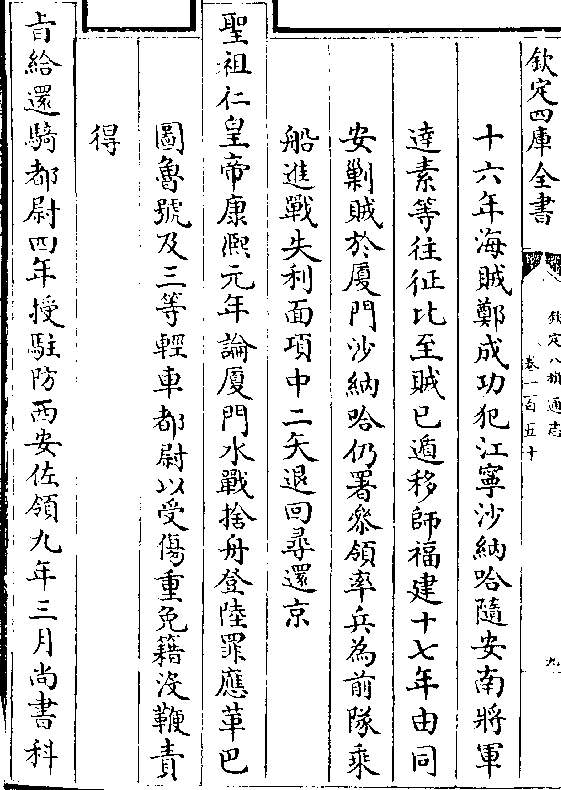 欽定四庫全書
欽定八旗通志
卷一百五十
九
十六年海賊鄭成功犯江寧沙納哈隨安南將軍
達素等往征比至賊已遁移師福建十七年由同
安剿賊於厦門沙納哈仍署叅領率兵為前隊乘
船進戰失利面項中二矢退回尋還京
聖祖仁皇帝康熙元年論厦門水戰捨舟登陸罪應革巴
圖魯號及三等輕車都尉以受傷重免籍沒鞭責
得
旨給還騎都尉四年授駐防西安佐領九年三月尚書科